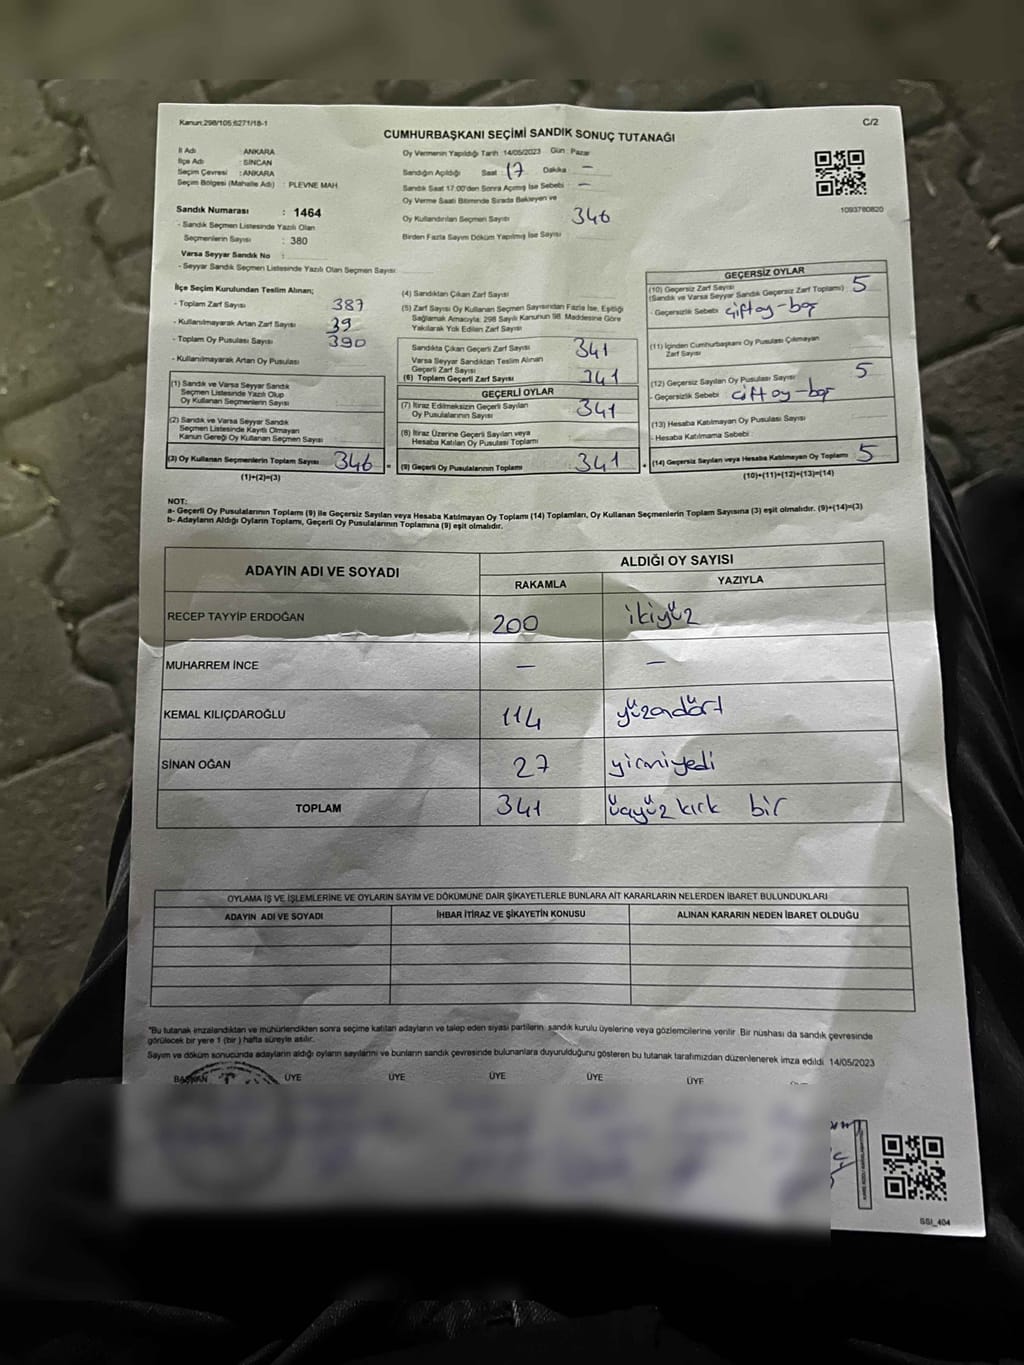 Kanun:298/105;6271/18-1
C/2
CUMHURBAŞKANI SEÇİMİ SANDIK SONUÇ TUTANAĞI
İl Adı : ANKARA
İlçe Adı : SİNCAN
Seçim Çevresi : ANKARA
Seçim Bölgesi (Mahalle Adı) : PLEVNE MAH.
Sandık Numarası : 1464
- Sandık Seçmen Listesinde Yazılı Olan
Seçmenlerin Sayısı : 380
Varsa Seyyar Sandık No :
- Seyyar Sandık Seçmen Listesinde Yazılı Olan Seçmen Sayısı:
Oy Vermenin Yapıldığı Tarih :14/05/2023 Gün : Pazar
Sandığın Açıldığı Saat : 17 Dakika : —
Sandık Saat 17:00'den Sonra Açılmış İse Sebebi : —
Oy Verme Saati Bitiminde Sırada Bekleyen ve
Oy Kullandırılan Seçmen Sayısı 346
Birden Fazla Sayım Döküm Yapılmış İse Sayısı :
1093780820
İlçe Seçim Kurulundan Teslim Alınan;
- Toplam Zarf Sayısı 387
- Kullanılmayarak Artan Zarf Sayısı 39
- Toplam Oy Pusulası Sayısı 390
- Kullanılmayarak Artan Oy Pusulası
(1) Sandık ve Varsa Seyyar Sandık
Seçmen Listesinde Yazılı Olup
Oy Kullanan Seçmenlerin Sayısı
(2) Sandık ve Varsa Seyyar Sandık
Seçmen Listesinde Kayıtlı Olmayan
Kanun Gereği Oy Kullanan Seçmen Sayısı
(3) Oy Kullanan Seçmenlerin Toplam Sayısı 346
(1)+(2)=(3)
(4) Sandıktan Çıkan Zarf Sayısı
(5) Zarf Sayısı Oy Kullanan Seçmen Sayısından Fazla İse, Eşitliği
Sağlamak Amacıyla; 298 Sayılı Kanunun 98. Maddesine Göre
Yakılarak Yok Edilen Zarf Sayısı
Sandıkta Çıkan Geçerli Zarf Sayısı 341
Varsa Seyyar Sandıktan Teslim Alınan
Geçerli Zarf Sayısı
(6) Toplam Geçerli Zarf Sayısı 341
GEÇERLİ OYLAR
(7) İtiraz Edilmeksizin Geçerli Sayılan
Oy Pusulalarının Sayısı 341
(8) İtiraz Üzerine Geçerli Sayılan veya
Hesaba Katılan Oy Pusulası Toplamı
= (9) Geçerli Oy Pusulalarının Toplamı 341
GEÇERSİZ OYLAR
(10) Geçersiz Zarf Sayısı
(Sandık ve Varsa Seyyar Sandık Geçersiz Zarf Toplamı) 5
- Geçersizlik Sebebi : çift oy - boş
(11) İçinden Cumhurbaşkanı Oy Pusulası Çıkmayan
Zarf Sayısı
(12) Geçersiz Sayılan Oy Pusulası Sayısı 5
- Geçersizlik Sebebi : çift oy - boş
(13) Hesaba Katılmayan Oy Pusulası Sayısı
- Hesaba Katılmama Sebebi :
+ (14) Geçersiz Sayılan veya Hesaba Katılmayan Oy Toplamı 5
(10)+(11)+(12)+(13)=(14)
NOT:
a- Geçerli Oy Pusulalarının Toplamı (9) ile Geçersiz Sayılan veya Hesaba Katılmayan Oy Toplamı (14) Toplamları, Oy Kullanan Seçmenlerin Toplam Sayısına (3) eşit olmalıdır. (9)+(14)=(3)
b- Adayların Aldığı Oyların Toplamı, Geçerli Oy Pusulalarının Toplamına (9) eşit olmalıdır.
ADAYIN ADI VE SOYADI
ALDIĞI OY SAYISI
RAKAMLA YAZIYLA
RECEP TAYYİP ERDOĞAN 200 ikiyüz
MUHARREM İNCE — —
KEMAL KILIÇDAROĞLU 114 yüzondört
SİNAN OĞAN 27 yirmiyedi
TOPLAM 341 üçyüz kırk bir
OYLAMA İŞ VE İŞLEMLERİNE VE OYLARIN SAYIM VE DÖKÜMÜNE DAİR ŞİKAYETLERLE BUNLARA AİT KARARLARIN NELERDEN İBARET BULUNDUKLARI
ADAYIN ADI VE SOYADI İHBAR İTİRAZ VE ŞİKAYETİN KONUSU ALINAN KARARIN NEDEN İBARET OLDUĞU
"Bu tutanak imzalandıktan ve mühürlendikten sonra seçime katılan adayların ve talep eden siyasi partilerin sandık kurulu üyelerine veya gözlemcilerine verilir. Bir nüshası da sandık çevresinde
görülecek bir yere 1 (bir ) hafta süreyle asılır.
Sayım ve döküm sonucunda adayların aldığı oyların sayılarını ve bunların sandık çevresinde bulunanlara duyurulduğunu gösteren bu tutanak tarafımızdan düzenlenerek imza edildi. 14/05/2023
BAŞKAN ÜYE ÜYE ÜYE ÜYE ÜYE
SSI_404